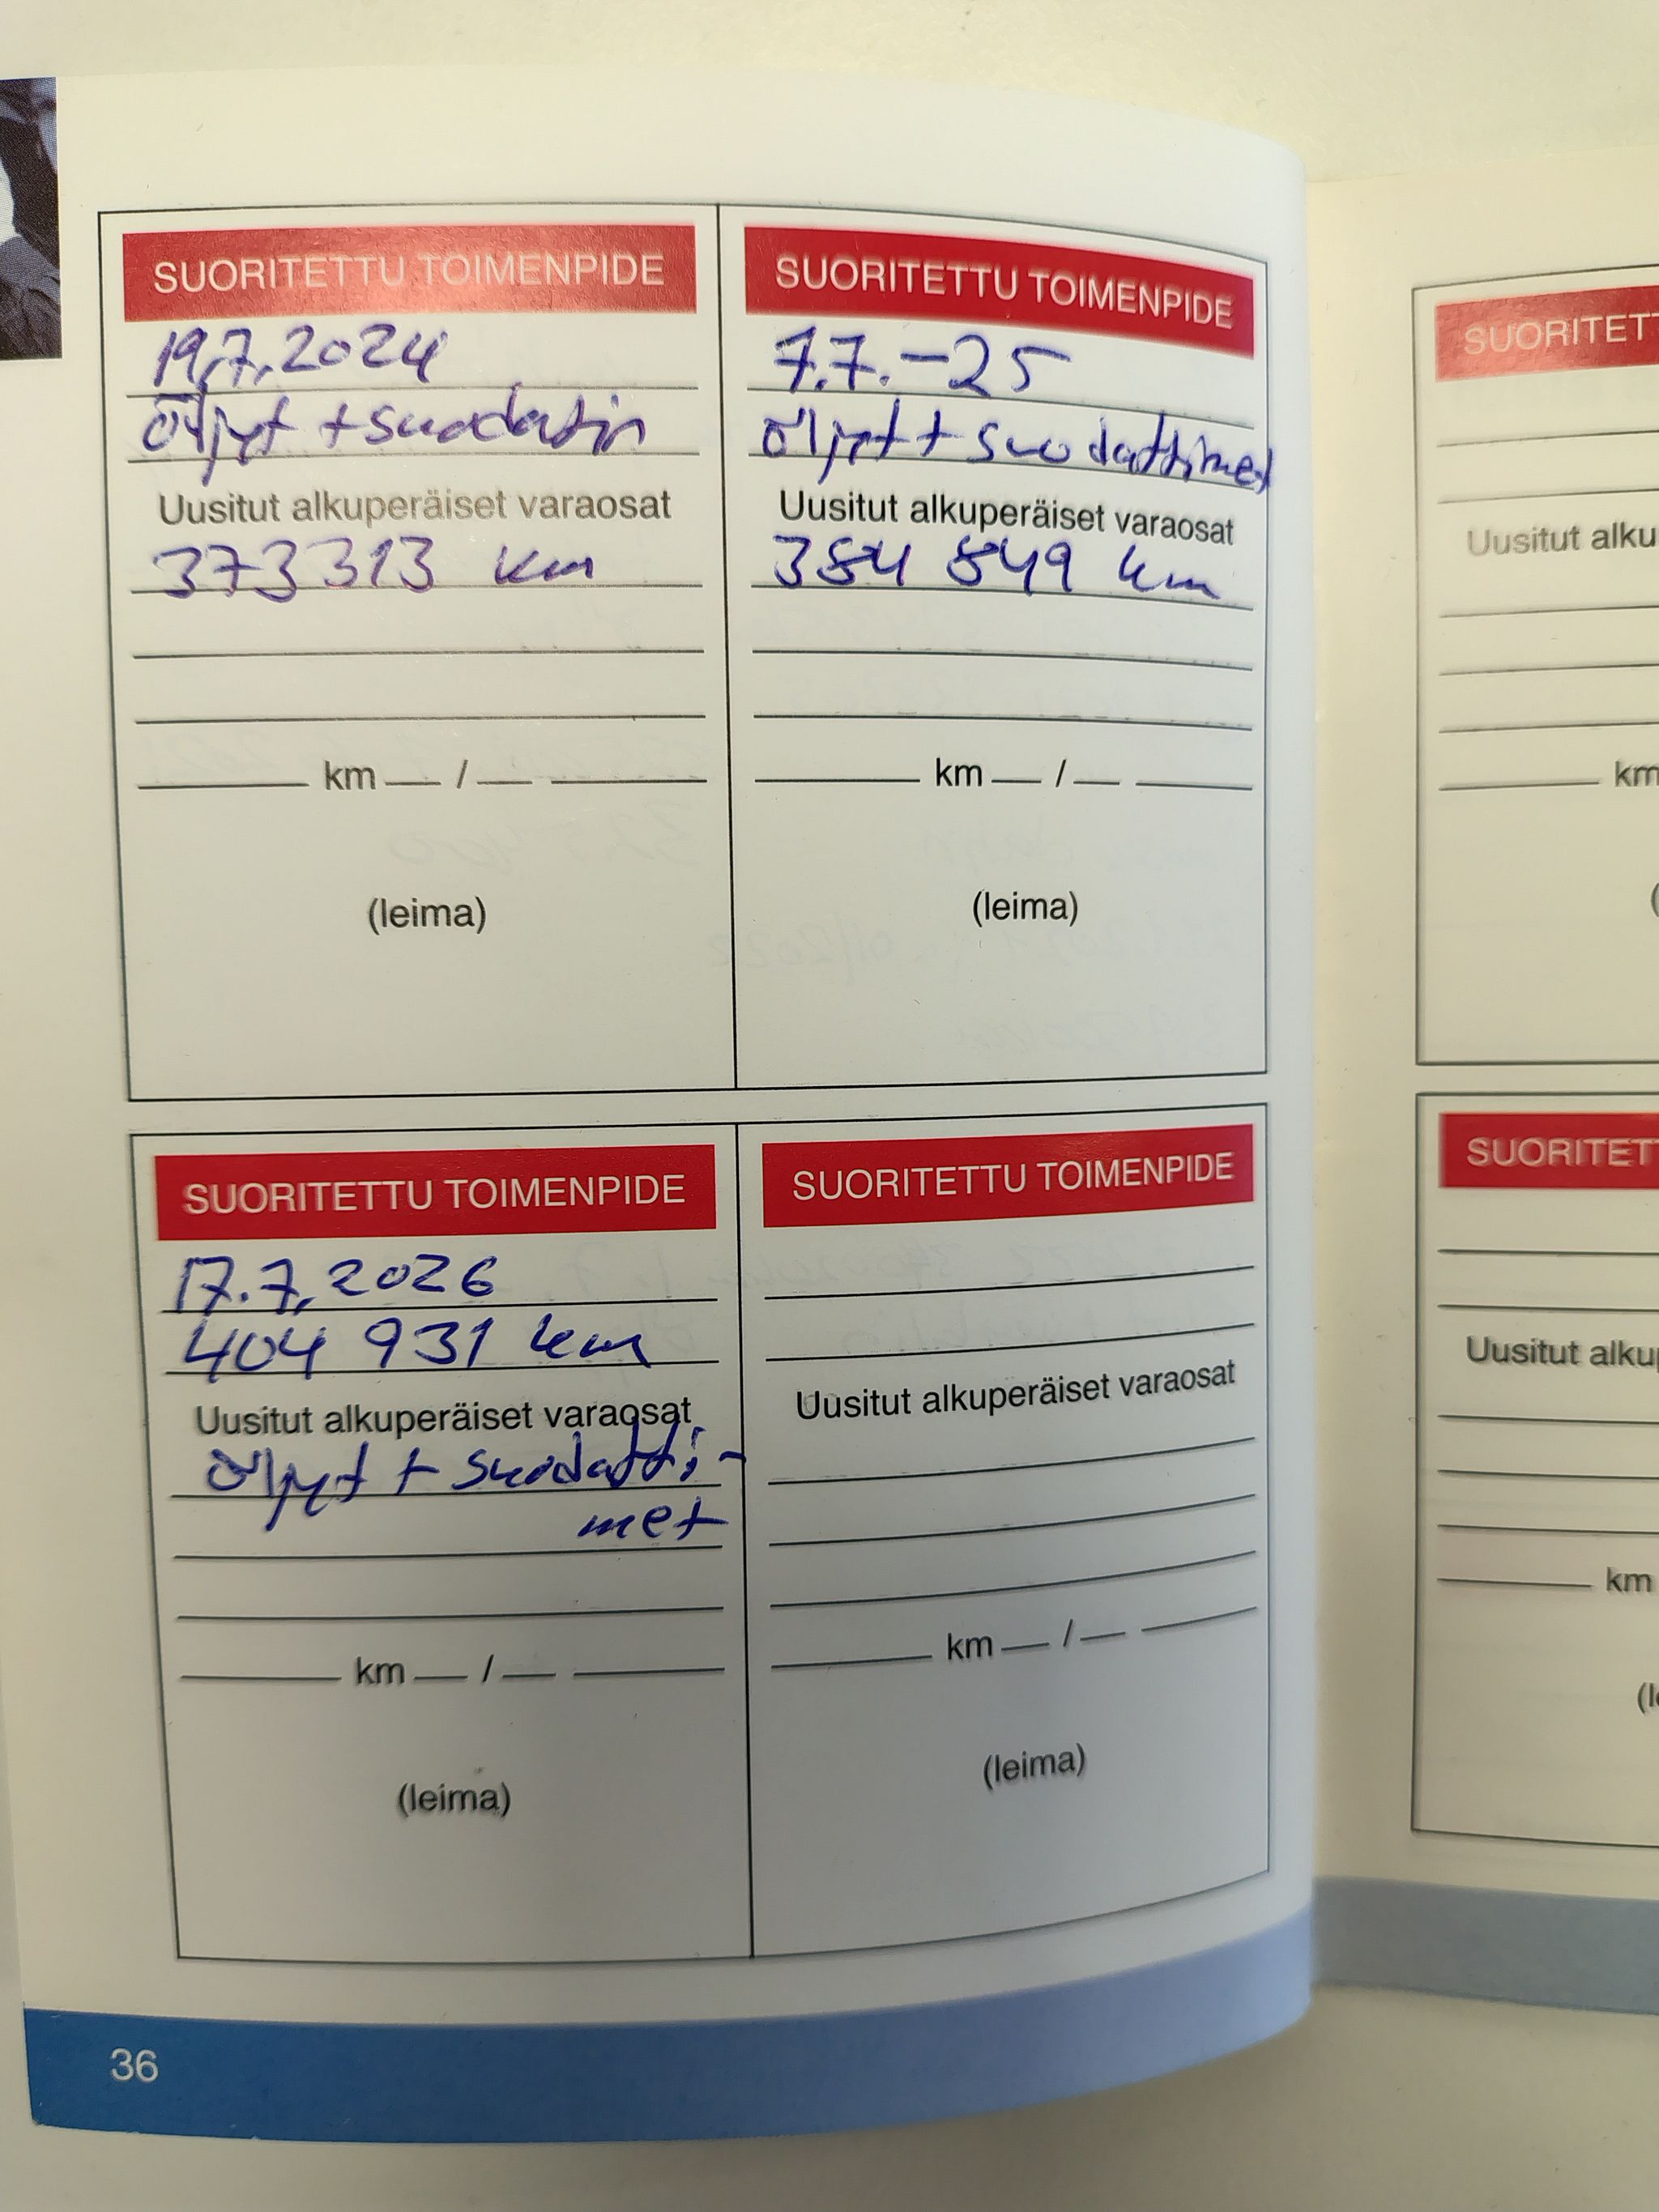 SUORITETTU TOIMENPIDE
19.7.2024
öljyt + suodatin
Uusitut alkuperäiset varaosat
373313 km
km / 
(leima)
SUORITETTU TOIMENPIDE
7.7.-25
öljyt + suodattimet
Uusitut alkuperäiset varaosat
384 849 km
km / 
(leima)
SUORITETTU TOIMENPIDE
17.7.2026
404 931 km
Uusitut alkuperäiset varaosat
öljyt + suodatti-
met
km / 
(leima)
SUORITETTU TOIMENPIDE
Uusitut alkuperäiset varaosat
km / 
(leima)
36
SUORITET
Uusitut alku
km
SUORITET
Uusitut alku
km